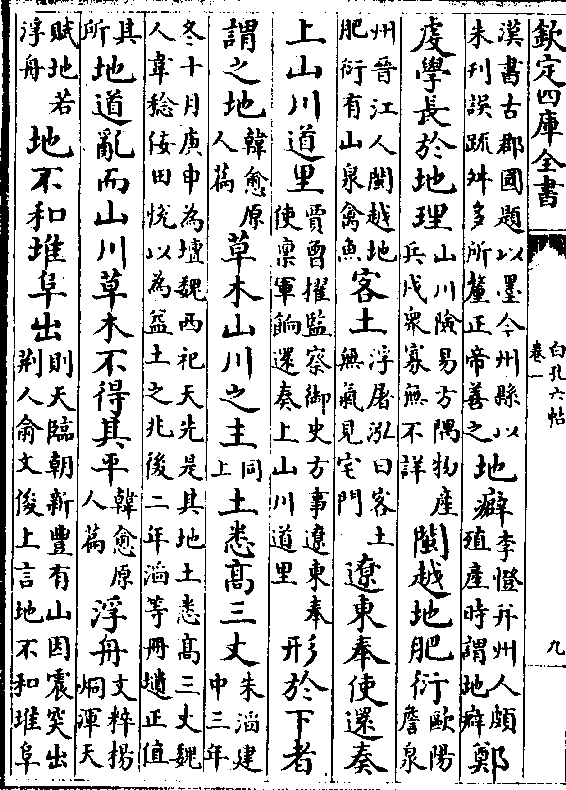 欽定四庫全書
白孔六帖
卷一
九
漢書古郡國題以墨今州縣以朱刊誤䟽舛多所釐正帝善之地癖李憕并州人頗殖産時謂地癖鄭
虔學長於地理山川險易方隅物産兵戍衆寡無不詳閩越地肥衍歐陽詹泉
州晉江人閩越地肥衍有山泉禽魚客土浮屠泓曰客土無氣見宅門遼東奉使還奏
上山川道里賈曾擢監察御史方事遼東奉使禀軍餉還奏上山川道里形於下者
謂之地韓愈原人篇草木山川之主同上土悉髙三丈朱滔建中三年
冬十月庚申為壇魏西祀天先是其地土悉髙三丈魏人韋稔佞田悅以為益土之兆後二年滔等冊壝正值
其所地道亂而山川草木不得其平韓愈原人篇浮舟文粹楊烱渾天
賦地若浮舟地不和堆阜出則天臨朝新豐有山因震突出荆人俞文俊上言地不和堆阜